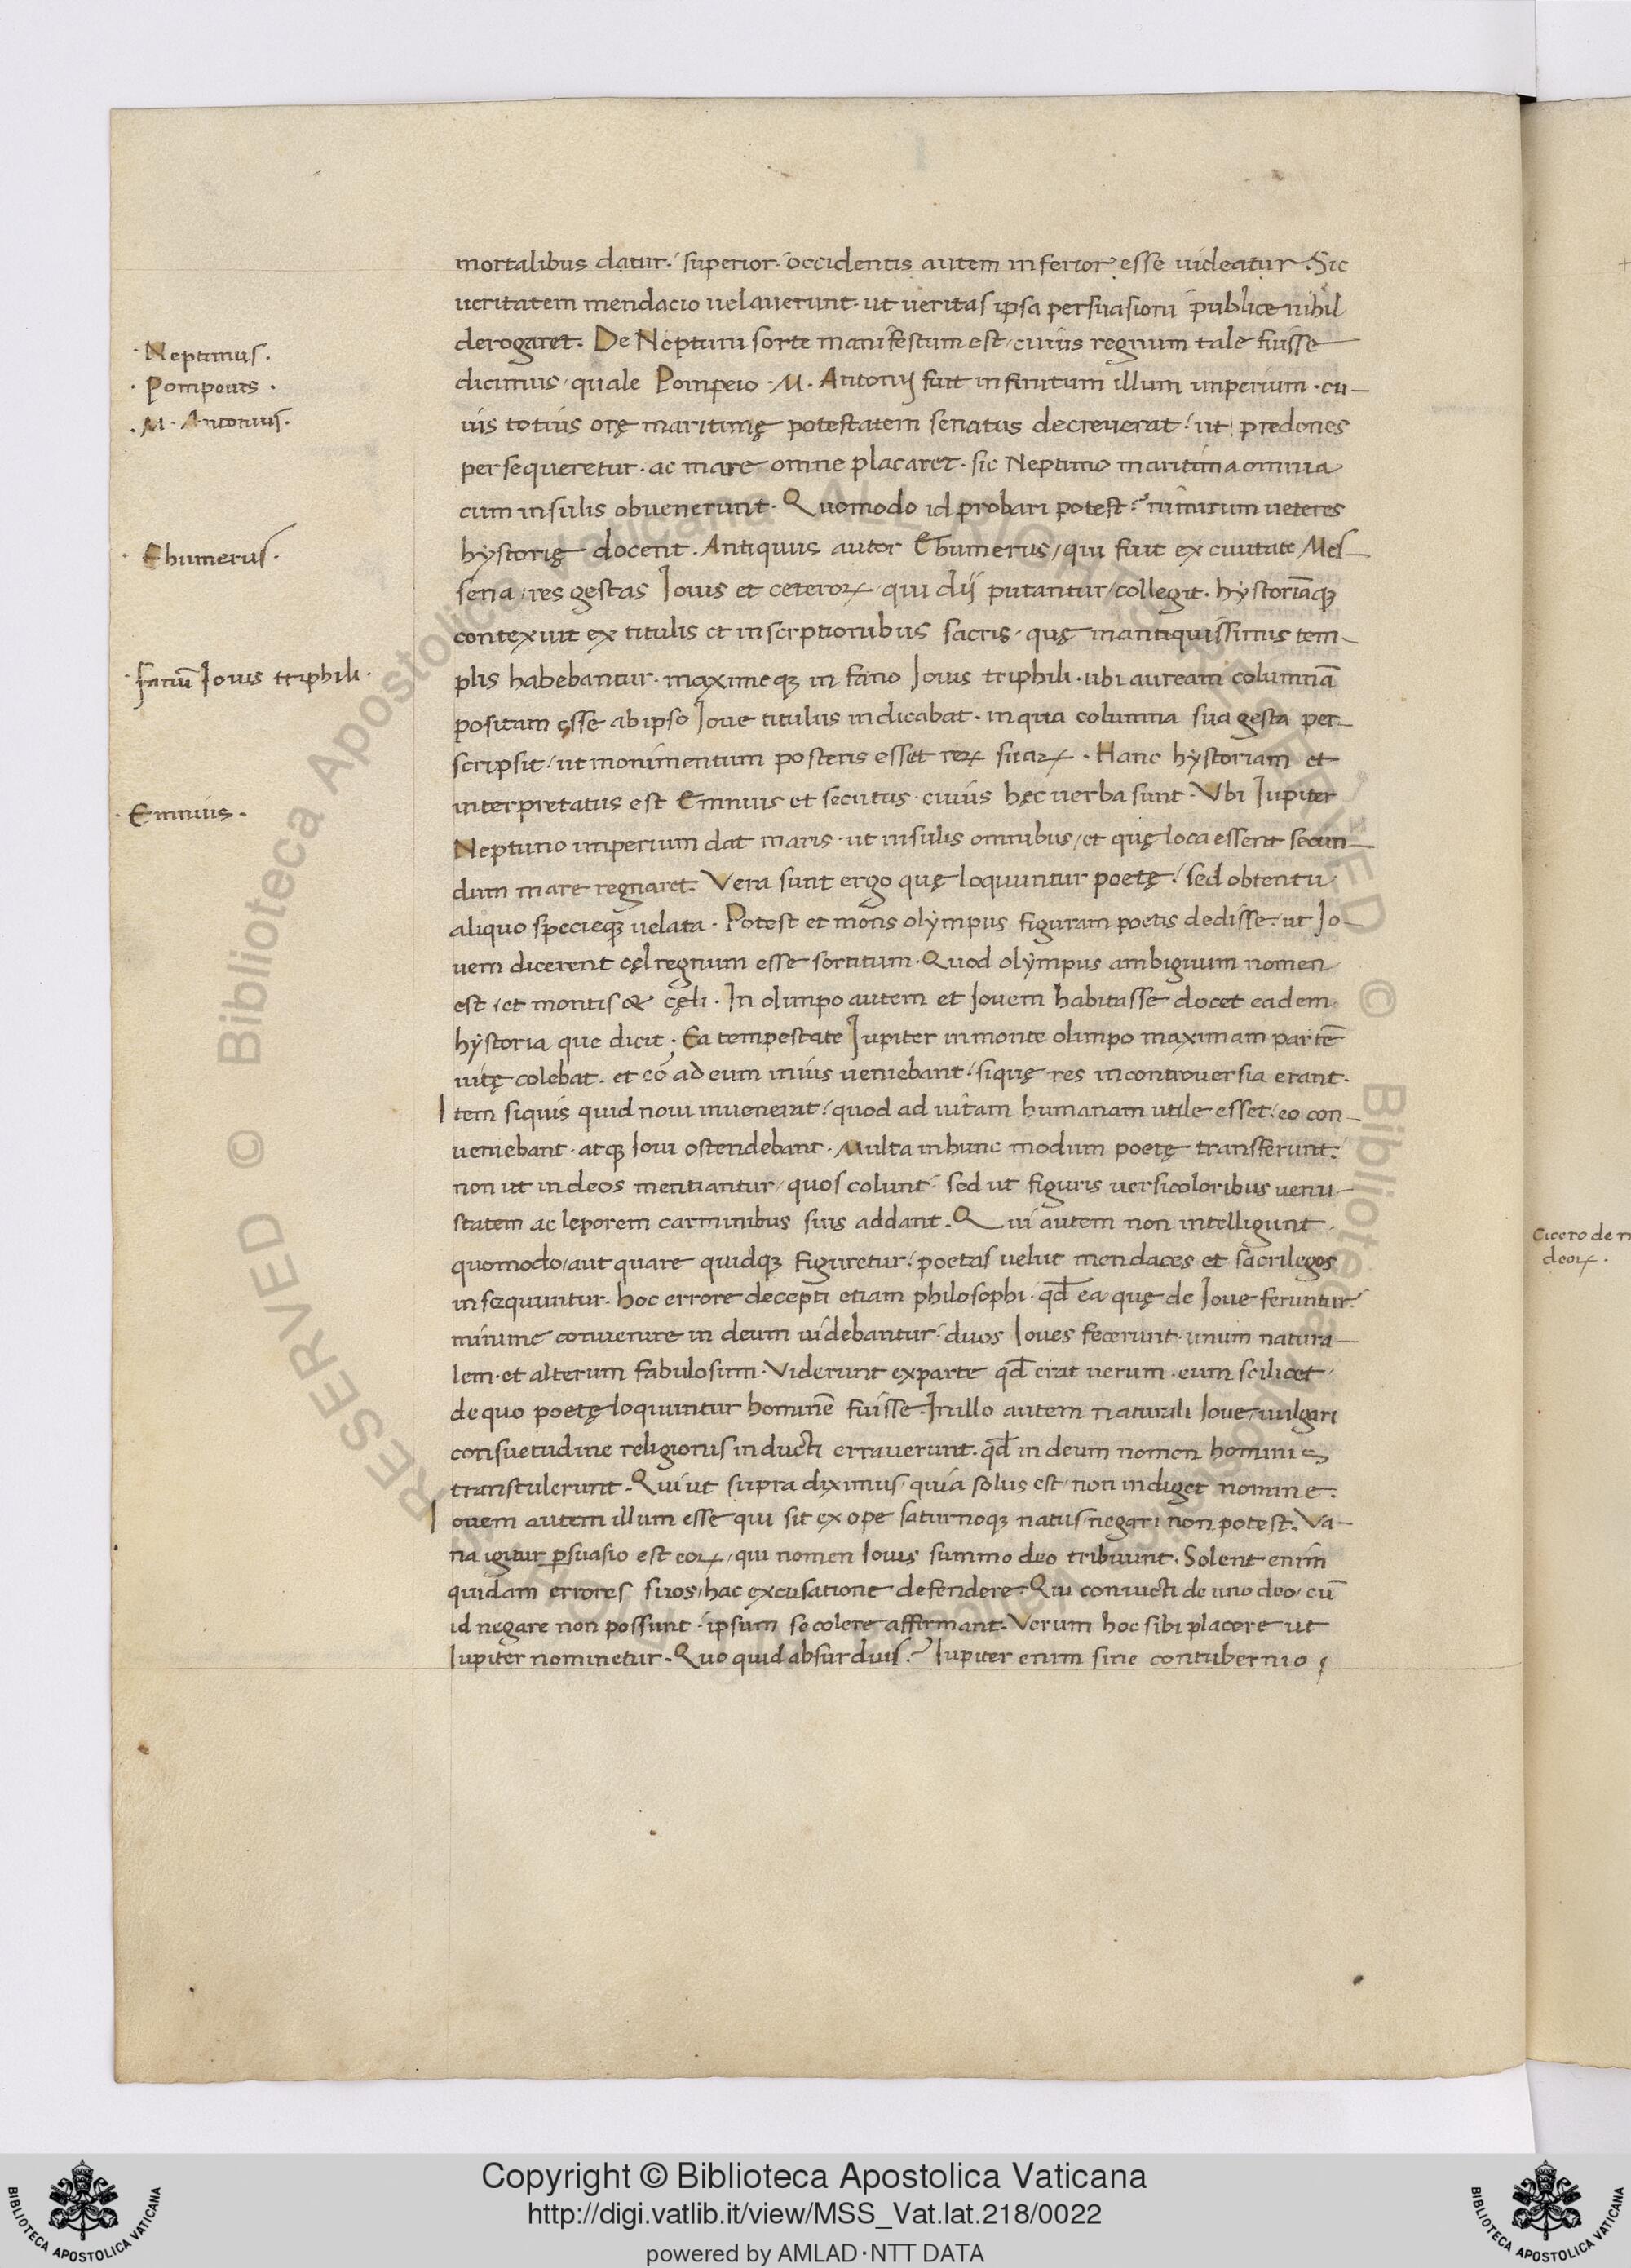 mortalibus datur. superior. occidentis autem inferior esse uideatur. Sic
ueritatem mendacio uelauerunt. ut ueritas ipsa persuasioni publice nihil
derogaret. De Neptuni sorte manifestum est, cuius regnum tale fuisse
dicimus, quale Pompeio. M. Antonij fuit infinitum illum imperium. cu-
uis totius orę maritimę potestatem senatus decreuerat. ut predones
persequeretur. ac mare omne placaret. sic Neptuno maritima omnia
cum insulis obuenerunt. Quomodo id probari potest? nimirum ueteres
hystorię docent. Antiquus autor Ehumerus, qui fuit ex ciuitate Mes-
sena, res gestas Iouis et ceteroꝝ, qui dij putantur, collegit. hystoriāqꝫ
contexuit ex titulis et inscrptionibus sacris. quę in antiquissimis tem-
plis habebantur. maximeqꝫ in fano Iouis triphili. ubi auream columnā
positam esse ab ipso Ioue titulus indicabat. in qua columna sua gesta per-
scripsit, ut monimentum posteris esset reꝝ suaꝝ. Hanc hystoriam et
interpretatus est Ennius et secutus. cuius hęc uerba sunt. Vbi Iupiter
Neptuno imperium dat maris. ut insulis omnibus, et quę loca essent secun-
dum mare regnaret. Vera sunt ergo quę loquuntur poetę. sed obtentu
aliquo specieqꝫ uelata. Potest et mons olympus figuram poetis dedisse. ut Io-
uem dicerent cęl regnum esse sortitum. Quod olympus ambiguum nomen
est, et montis & cęli. In olimpo autem et Iouem habitasse docet eadem
hystoria que dicit. Ea tempestate Iupiter in monte olimpo maximam partē
uitę colebat. et eo ad eum in ius ueniebant. siquę res in controuersia erant.
Item siquis quid noui inuenerat. quod ad uitam humanam utile esset. eo con-
ueniebant. atqꝫ Ioui ostendebant. Multa in hunc modum poetę transferunt.
non ut in deos mentiantur, quos colunt. sed ut figuris uersicoloribus uenu-
statem ac leporem carminibus suis addant. Qui autem non intelligunt
quomodo, aut quare quidqꝫ figuretur. poetas uelut mendaces et sacrilegos
insequuntur. hoc errore decepti etiam philosophi. qd̄ ea quę de Ioue feruntur.
minime conuenire in deum uidebantur. duos Ioues fecerunt. unum natura-
lem. et alterum fabulosum. Viderunt ex parte qd̄ erat uerum. eum scilicet
de quo poetę loquuntur hominē fuisse. In illo autem naturali Ioue, uulgari
consuetudine religionis inducti errauerunt. qd̄ in deum nomen hominis
transtulerunt. Qui ut supra diximus. quia solus est, non indiget nomine.
Iouem autem illum esse qui sit ex ope saturnoqꝫ natus, negari non potest. Va-
na igitur ꝑsuasio est eoꝝ, qui nomen Iouis summo deo tribuunt. Solent enim
quidam errores suos, hac excusatione defendere. Qui conuicti de uno deo, cū
id negare non possunt. ipsum se colere affirmant. Verum hoc sibi placere ut
Iupiter nominetur. Quo quid absurdius? Iupiter enim sine contubernio
Neptunus.
Pompeius.
M. Antonius.
Ehumerus.
fanū Iouis triphili.
Ennius.
Cicero de
deoꝝ.
Copyright © Biblioteca Apostolica Vaticana
http://digi.vatlib.it/view/MSS_Vat.lat.218/0022
powered by AMLAD·NTT DATA
BIBLIOTECA APOSTOLICA VATICANA
BIBLIOTECA APOSTOLICA VATICANA